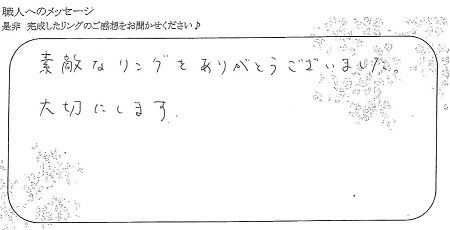 職人へのメッセージ
是非 完成したリングのご感想をお聞かせください♪
素敵なリングをありがとうございました。
大切にします.